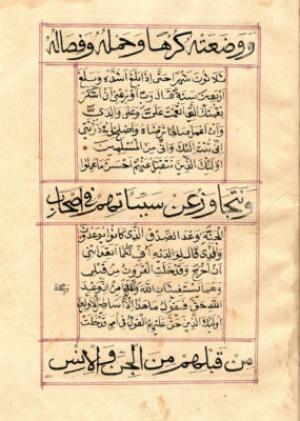 ووضعته كرها وحمله وفصاله
ثلاثون شهرا حتى إذا بلغ أشده وبلغ
أربعين سنة قال رب أوزعني أن أشكر
نعمتك التي أنعمت علي وعلى والدي
وأن أعمل صالحا ترضاه وأصلح لي في ذريتي
إني تبت إليك وإني من المسلمين
أولئك الذين نتقبل عنهم أحسن ما عملوا
ونتجاوز عن سيئاتهم في أصحاب
الجنة وعد الصدق الذي كانوا يوعدون
والذي قال لوالديه أف لكما أتعدانني
أن أخرج وقد خلت القرون من قبلي
وهما يستغيثان الله ويلك آمن إن وعد
الله حق فيقول ما هذا إلا أساطير الأولين
أولئك الذين حق عليهم القول في أمم قد خلت
من قبلهم من الجن والإنس